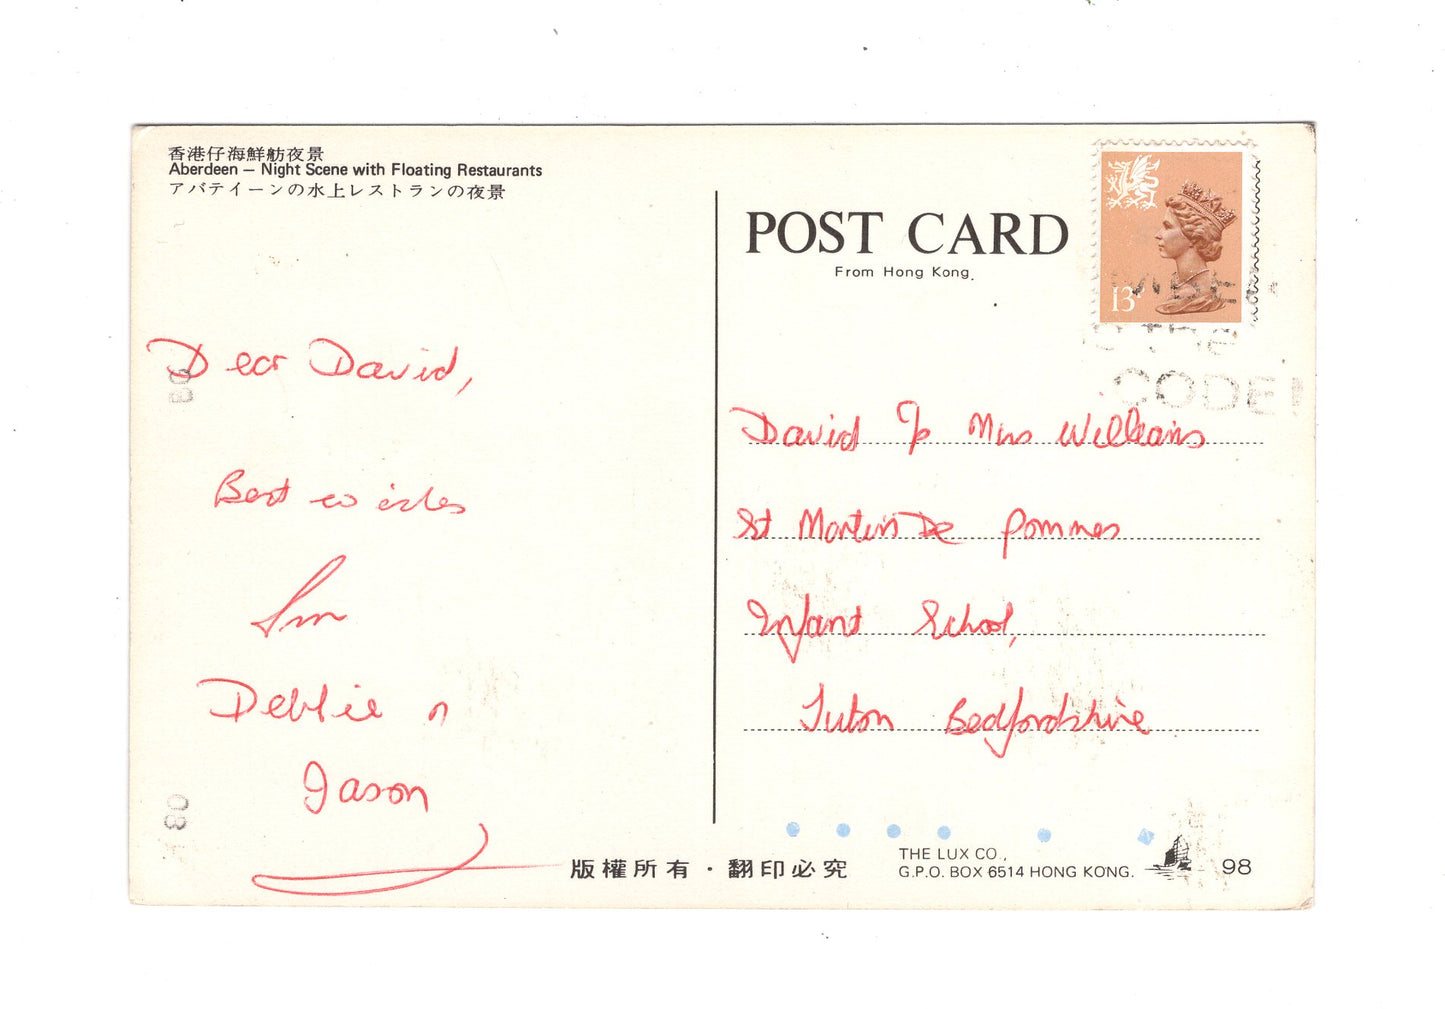 香港仔海鮮舫夜景
Aberdeen – Night Scene with Floating Restaurants
アバテイーンの水上レストランの夜景
POST CARD
From Hong Kong.
13P
THE
CODE
Dear David,
Best wishes
from
Debbie n
Jason
David c/o Mrs Williams
St Martins De Pommes
Infant School,
Luton Bedfordshire
版權所有・翻印必究
THE LUX CO.,
G.P.O. BOX 6514 HONG KONG.
98